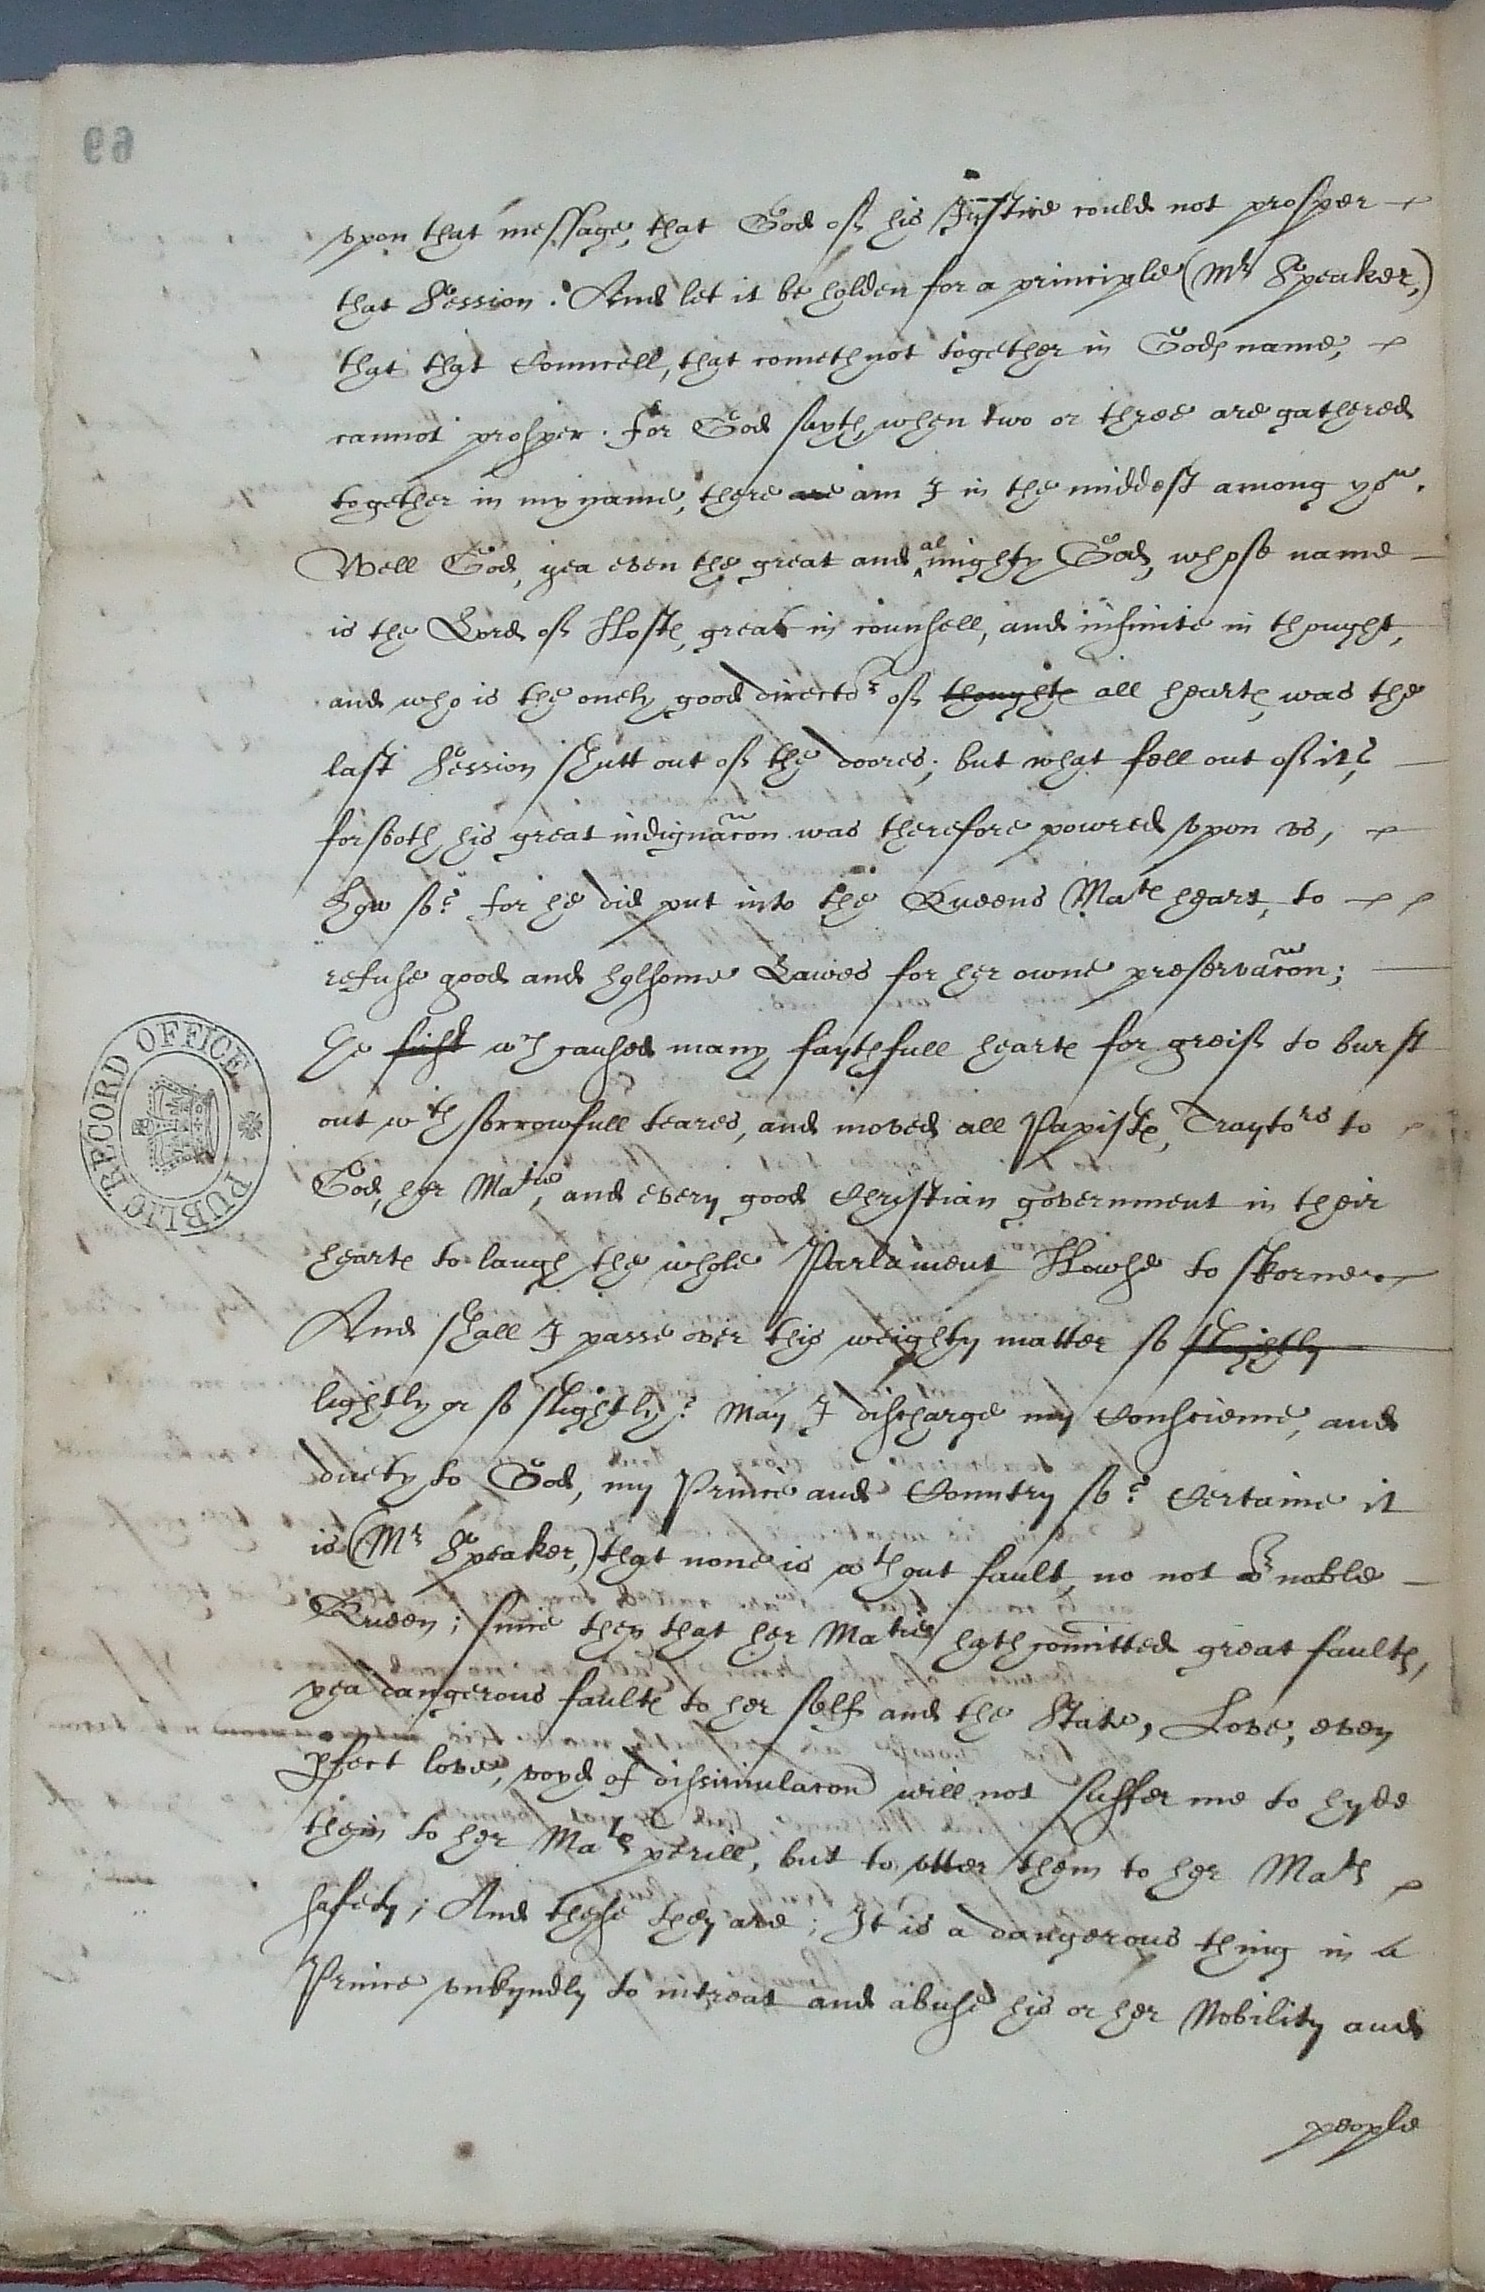 69
vpon that message, that God of his Justice could not prosper
that Session. And let it be holden for a principle (Mr Speaker,)
that that Councell, that cometh not together in Gods name,
cannot prosper. for God sayth, when two or three are gathered
together in my name, there are am I in the middest among you.
Well God, yea even the great and almighty God, whose name
is the Lord of Hostes, great in counsell, and infinite in thought,
and who is the onely good director of thoughtes all heartes, was the
last Session shutt out of the doores; but what fell out of it?
forsooth, his great indignacon was therefore powred vpon vs,
how so? for he did put into the Queens Mates heart, to
refuse good and holsome Lawes for her owne preservacon;
wch caused many faythfull heartes for greif to burst
out wth sorrowfull teares, and moved all Papistes, Traytors to
God, her Matie, and every good Christian government in their
heartes to laugh the whole Parlament Howse to skorne.
And shall I passe over this weighty matter so slightly
lightly or so slightly? May I discharge my Conscience, and
duety to God, my Prince and Country so? Certaine it
is (Mr Speaker,) that none is wthout fault, no not or noble
Queen; since then that her Matie hath comitted great faultes,
yea dangerous faultes to her self and the State, Love, even
pfect love, voyd of dissimulacon will not suffer me to hyde
them to her Mates perill, but to vtter them to her Mates
safety; And these they are; It is a dangerous thing in a
Prince vnkyndly to intreat and abuse his or her Nobility and
people
PUBLIC RECORD OFFICE